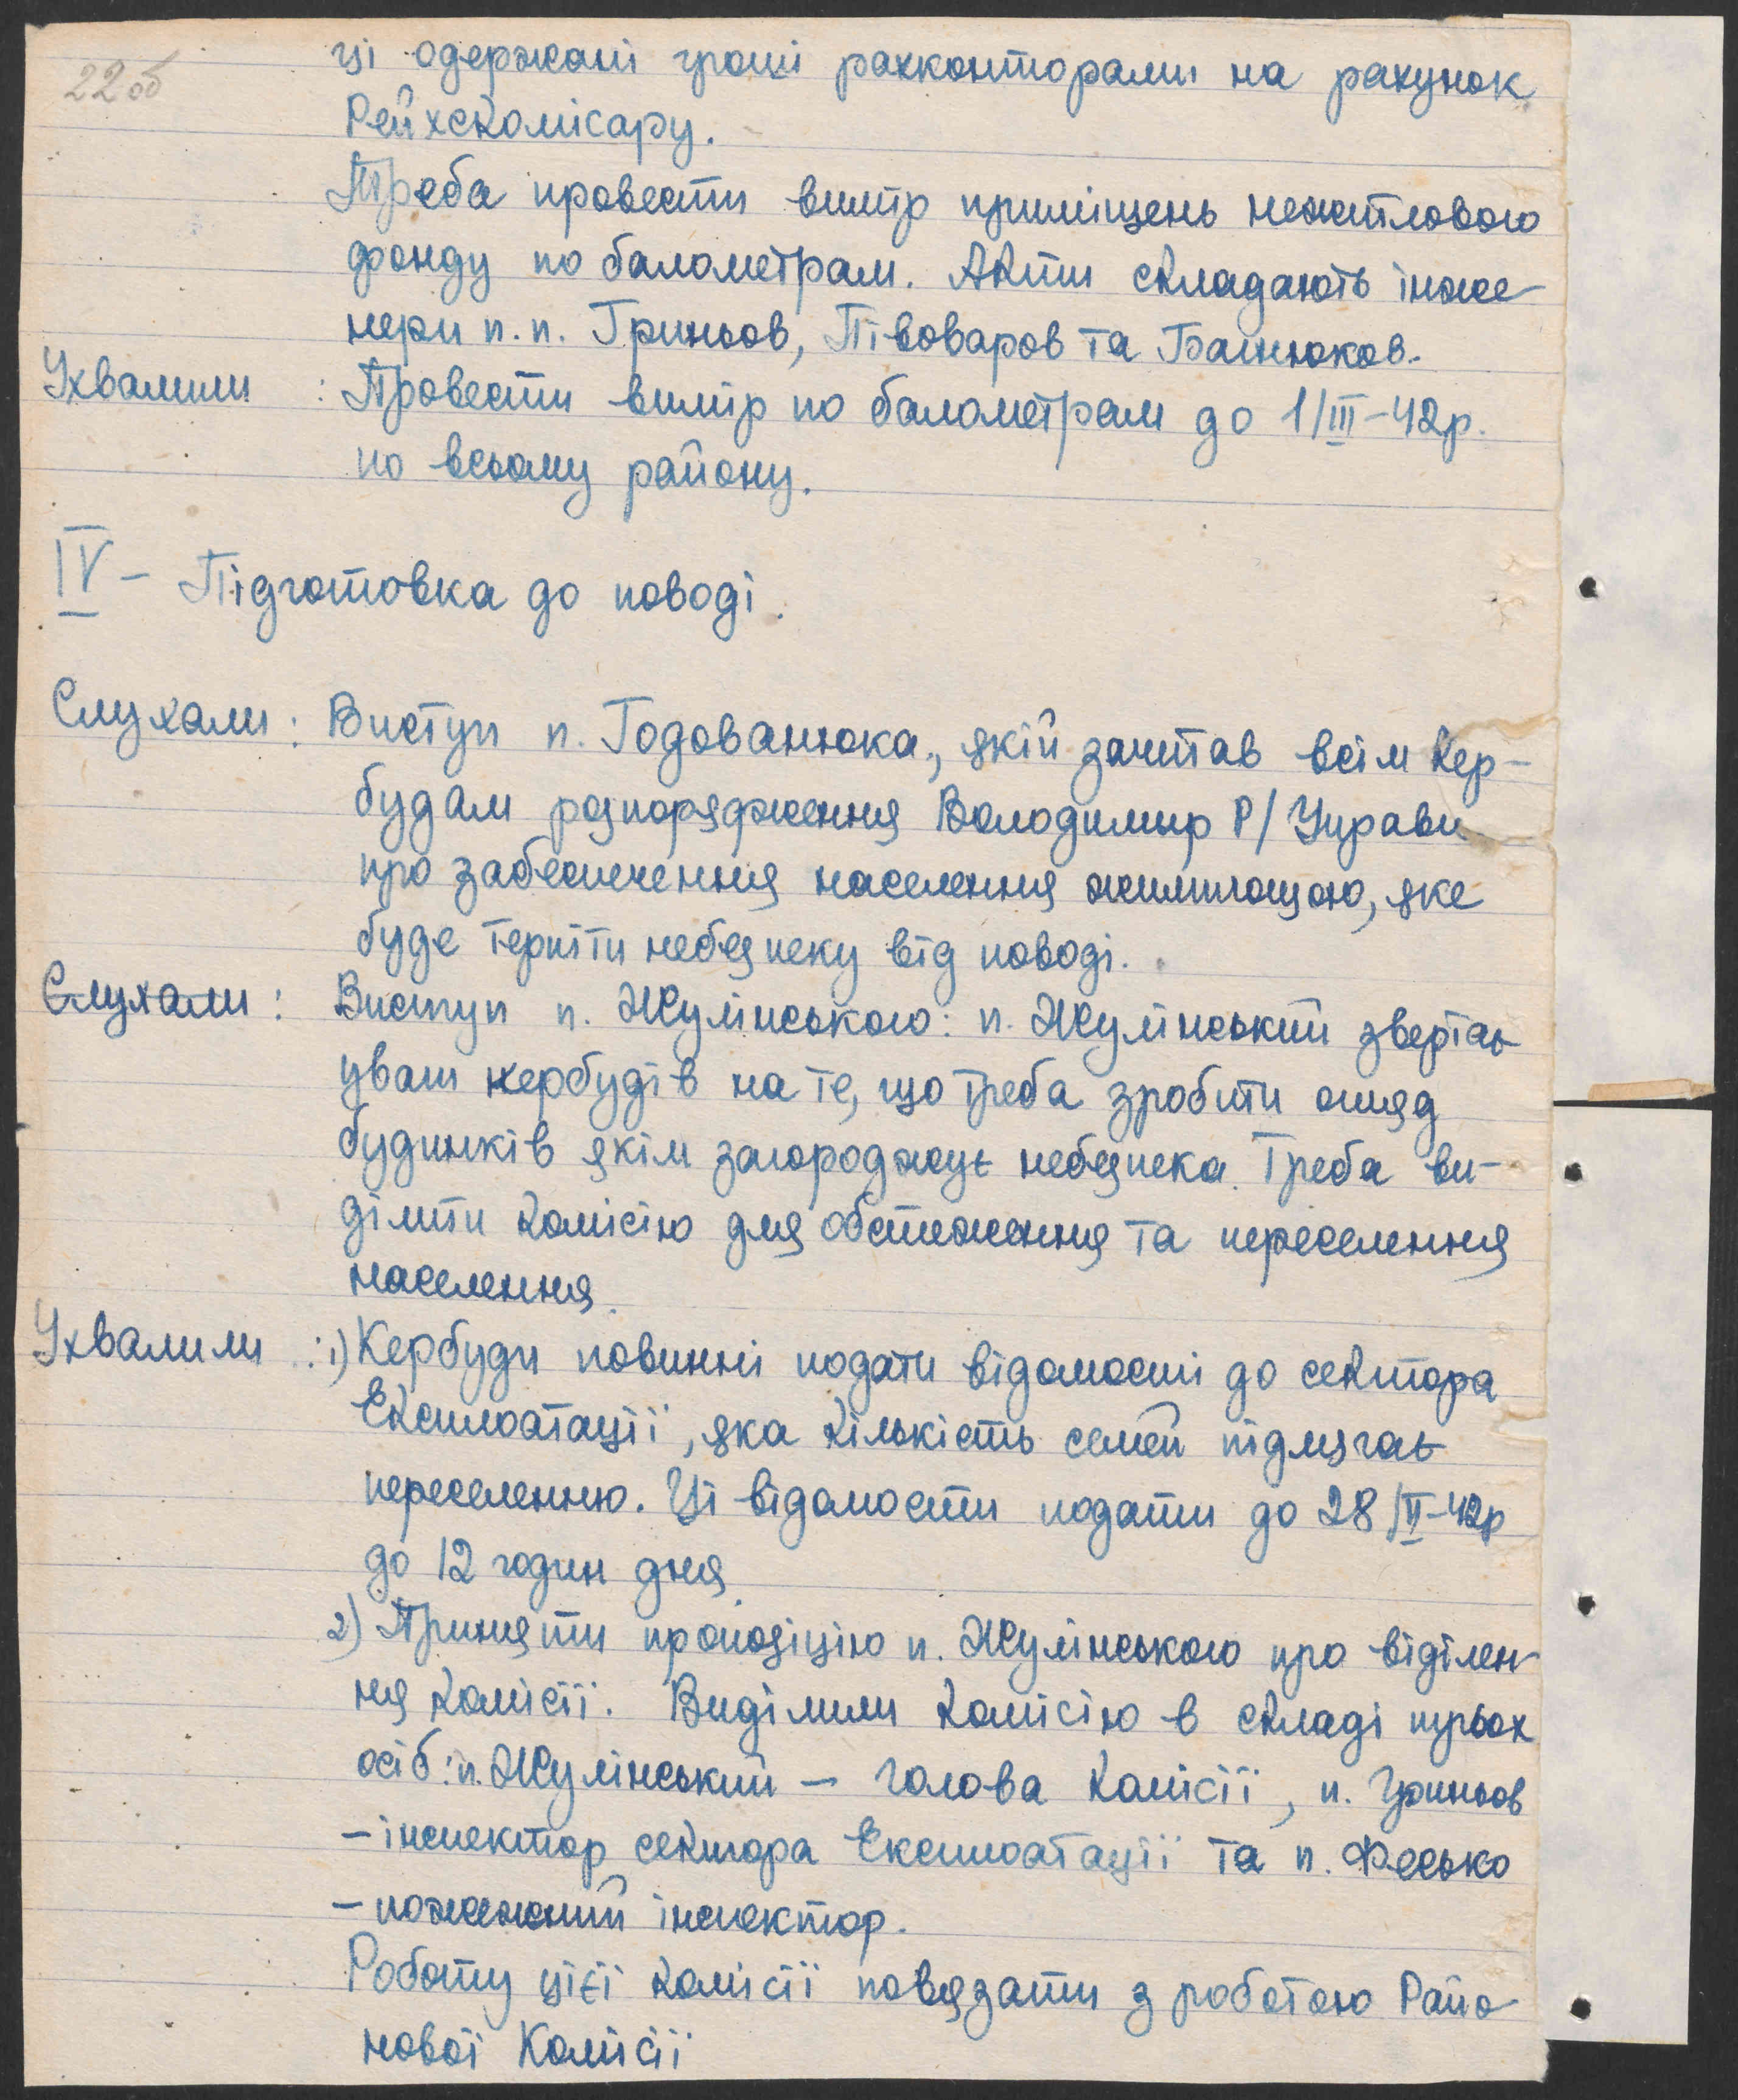 22об
ці одержані гроші рахконторами на рахунок
Рейхскомісару.
Треба провести вимір приміщень нежитлового
фонду по балометрам. Акти складають інже-
нери п.п. Гриньов, Півоваров та Банюков.
Ухвалили : Провести вимір по балометрам до 1/III-42р.
по всьому району.
IV - Підготовка до поводі.
Слухали: Виступ п. Годованюка, якій зачитав всім кер-
будам розпорядження Володимир Р/Управи
про забеспечення населення житлплощою, яке
буде терпіти небезпеку від поводі.
Слухали: Виступ п. Жулінського: п. Жулінський звертає
увагу кербудів на те, що треба зробити огляд
будинків якім загороджує небезпека. Треба ви-
ділити комісію для обстеження та переселення
населення.
Ухвалили : 1) Кербуди повинні подати відомості до сектора
Експлоатації, яка кількість семей підлягає
переселенню. Ці відомости подати до 28/II-42р
до 12 годин дня.
2) Приняти пропозіцію п. Жулінського про віділен-
ня комісії. Виділили комісію в складі трьох
осіб: п. Жулінський - голова комісії, п. Гриньов
- інспектор сектора Експлоатації та п. Фесько
- пожежний інспектор.
Роботу цієї комісії повязати з роботою Райо-
нової Комісії